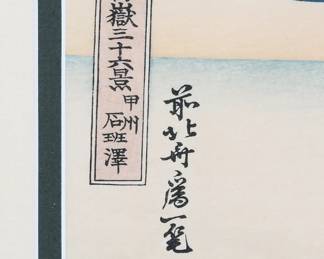 嶽三十六景 甲州石班澤
前北斎爲一筆